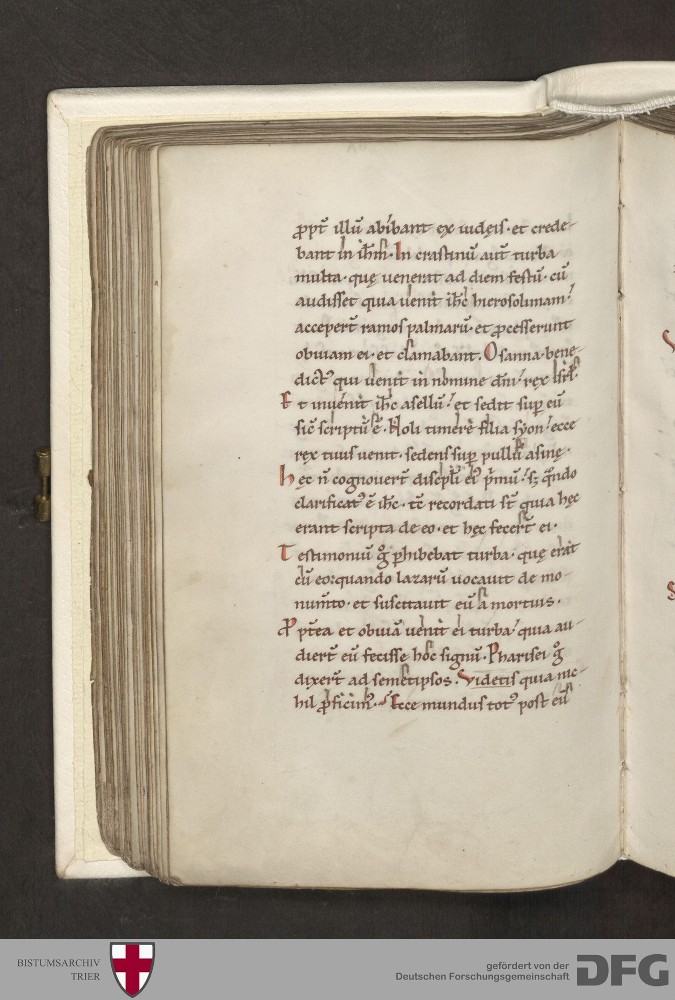 ꝓpt̄ illū abibant ex iudęis· et crede-
bant in ih̄m· In crastinū aut̄ turba
multa· quę uenerat ad diem festū· cū
audisset quia uenit ih̄c hierosolimam!
accepert̄ ramos palmarū· et ꝓcesserunt
obuiam ei· et clamabant. Osanna· bene-
dict᾽ qui uenit in nomine dn̄i! rex isrl̄·
Et inuenit ih̄c asellū! et sedit sup̄ eū
sic̄ scriptū ē· Noli timere filia syon! ecce
rex tuus uenit· sedens sup̄ pullū asinę·
hęc n̄ cognouert̄ discipl̄i ei᾽ p̄mū! sꝫ qn̄do
clarificat᾽ ē ih̄c· tc̄ recordati st̄ quia hęc
erant scripta de eo· et hęc fecert̄ ei·
Testimoniū g̊ ꝑhibebat turba· quę erat
cū eo: quando lazarū uocauit de mo-
num̄to· et suscitauit eū a mortuis·
Ꝓpt̄ea et obuiā uenit ei turba! quia au-
diert̄ eū fecisse hoc signū· Pharisei g̊
dixert̄ ad semetipsos. Videtis quia ni-
hil ꝓficim᾽· Ecce mundus tot᾽ post eū
BISTUMSARCHIV
TRIER
gefördert von der
Deutschen Forschungsgemeinschaft
DFG